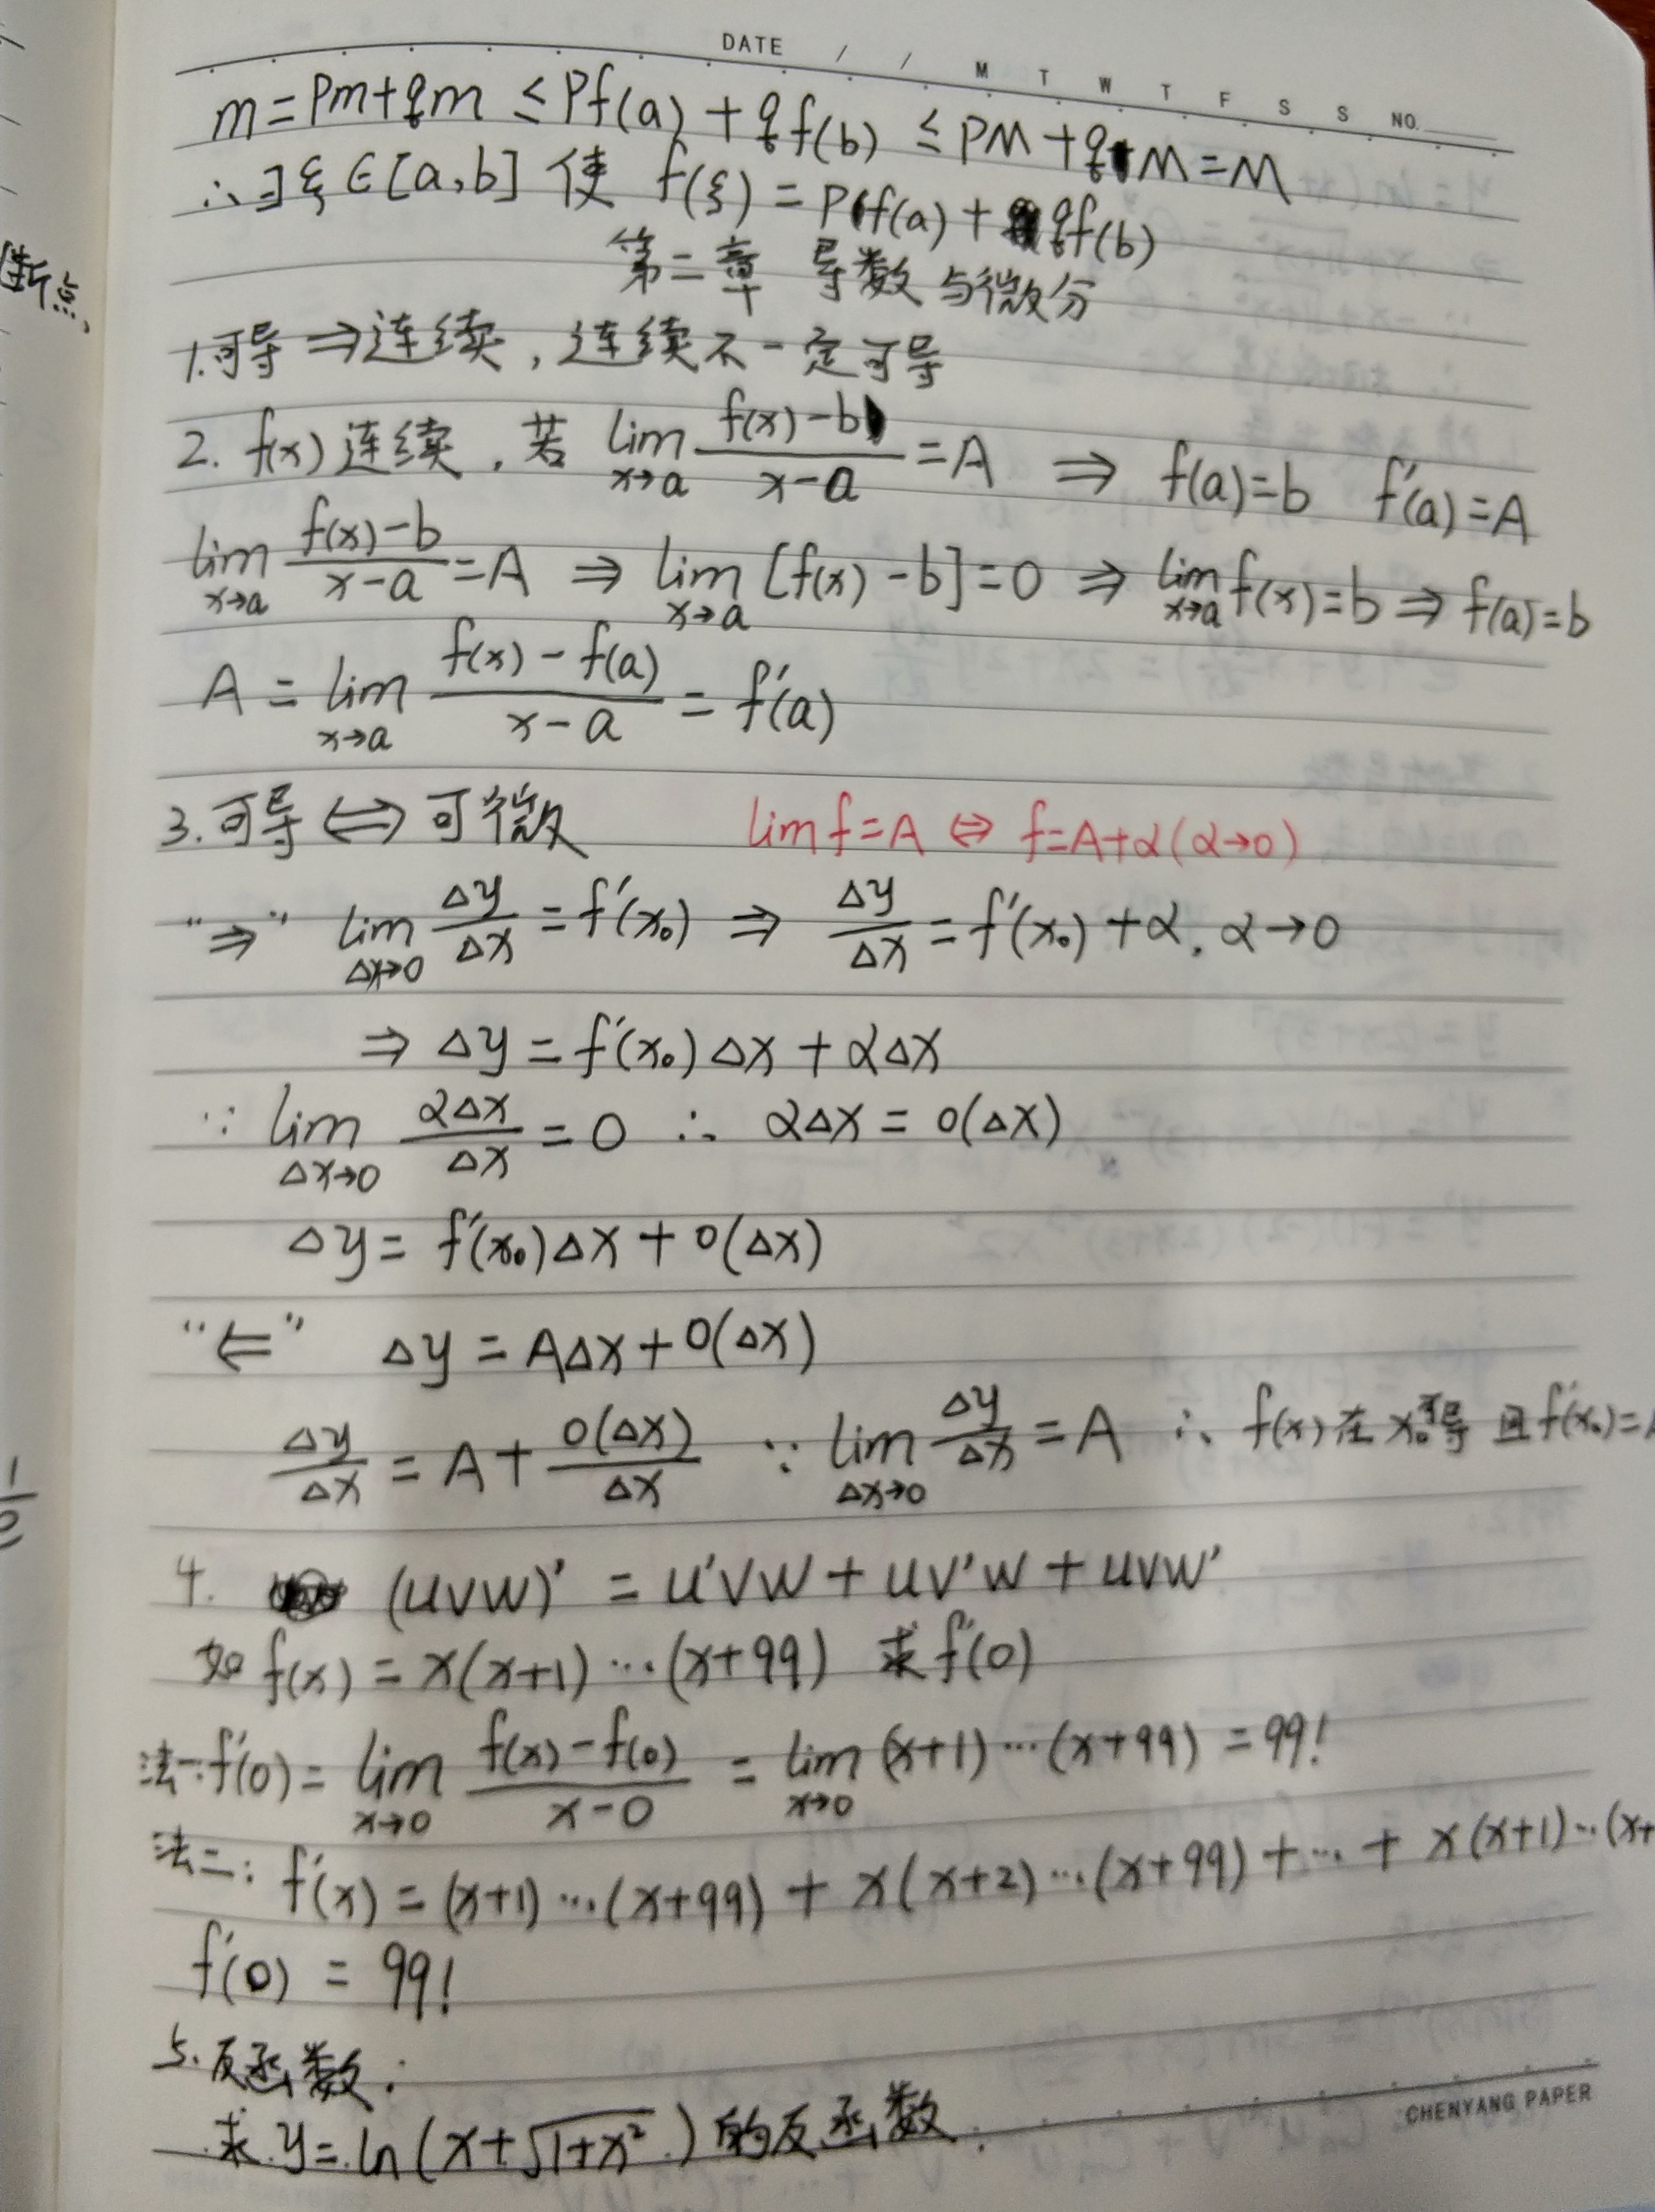 DATE / / M T W T F S S NO.
m=Pm+qm ≤Pf(a)+qf(b) ≤PM+qM=M
∴∃ξ∈[a,b] 使 f(ξ)=Pf(a)+qf(b)
第二章 导数与微分
断点,
1.可导⇒连续,连续不一定可导
2. f(x)连续,若 lim x→a (f(x)-b)/(x-a) =A ⇒ f(a)=b f'(a)=A
lim x→a (f(x)-b)/(x-a) =A ⇒ lim x→a [f(x)-b]=0 ⇒ lim x→a f(x)=b ⇒ f(a)=b
A = lim x→a (f(x)-f(a))/(x-a) = f'(a)
3.可导⇔可微 lim f=A ⇔ f=A+α(α→0)
"⇒" lim Δx→0 Δy/Δx =f'(x₀) ⇒ Δy/Δx =f'(x₀)+α, α→0
⇒ Δy=f'(x₀)Δx+αΔx
∵ lim Δx→0 αΔx/Δx =0 ∴ αΔx=o(Δx)
Δy=f'(x₀)Δx+o(Δx)
"⇐" Δy=AΔx+o(Δx)
Δy/Δx =A+ o(Δx)/Δx ∵ lim Δx→0 Δy/Δx =A ∴ f(x)在x₀可导 且f'(x₀)=A
4. (uvw)'=u'vw+uv'w+uvw'
如f(x)=x(x+1)⋯(x+99) 求f'(0)
法一:f'(0)= lim x→0 (f(x)-f(0))/(x-0) = lim x→0 (x+1)⋯(x+99)=99!
法二:f'(x)=(x+1)⋯(x+99)+x(x+2)⋯(x+99)+⋯+x(x+1)⋯(x+
f'(0)=99!
5.反函数:
求y=ln(x+√(1+x²))的反函数.
CHENYANG PAPER